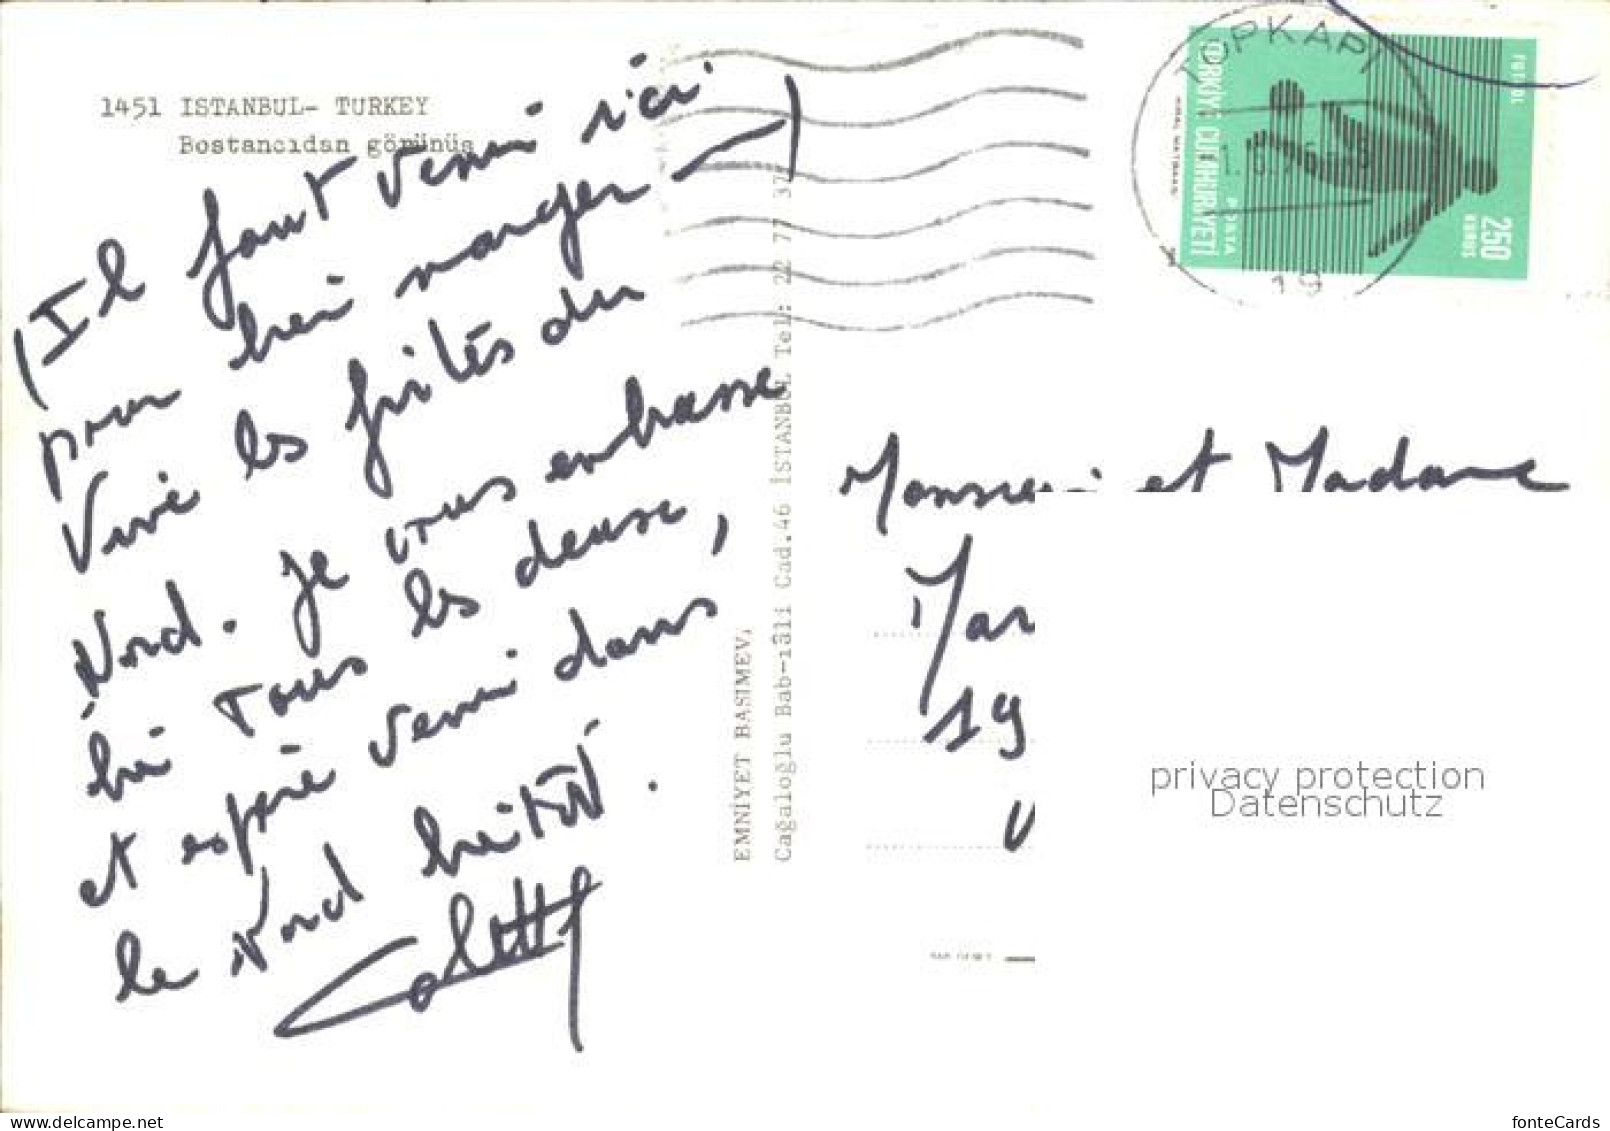 1451 ISTANBUL- TURKEY
Bostancıdan görünüş
(Il faut venir ici
pour bien manger -)
Vive les frites du
Nord. Je vous embrasse
bien tous les deux,
et espère venir dans
le Nord bientôt.
Colette
EMNİYET BASIMEV,
Cağaloğlu Bab-ıâli Cad.46 İSTANBUL Tel: 22 77 37
TOPKAPI
19
TÜRKİYE CUMHURİYETİ
POSTA
250
KURUŞ
FUTBOL
Monsieur et Madame
Mar
19
V
privacy protection
Datenschutz
www.delcampe.net
fonteCards